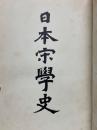 日本宗學史